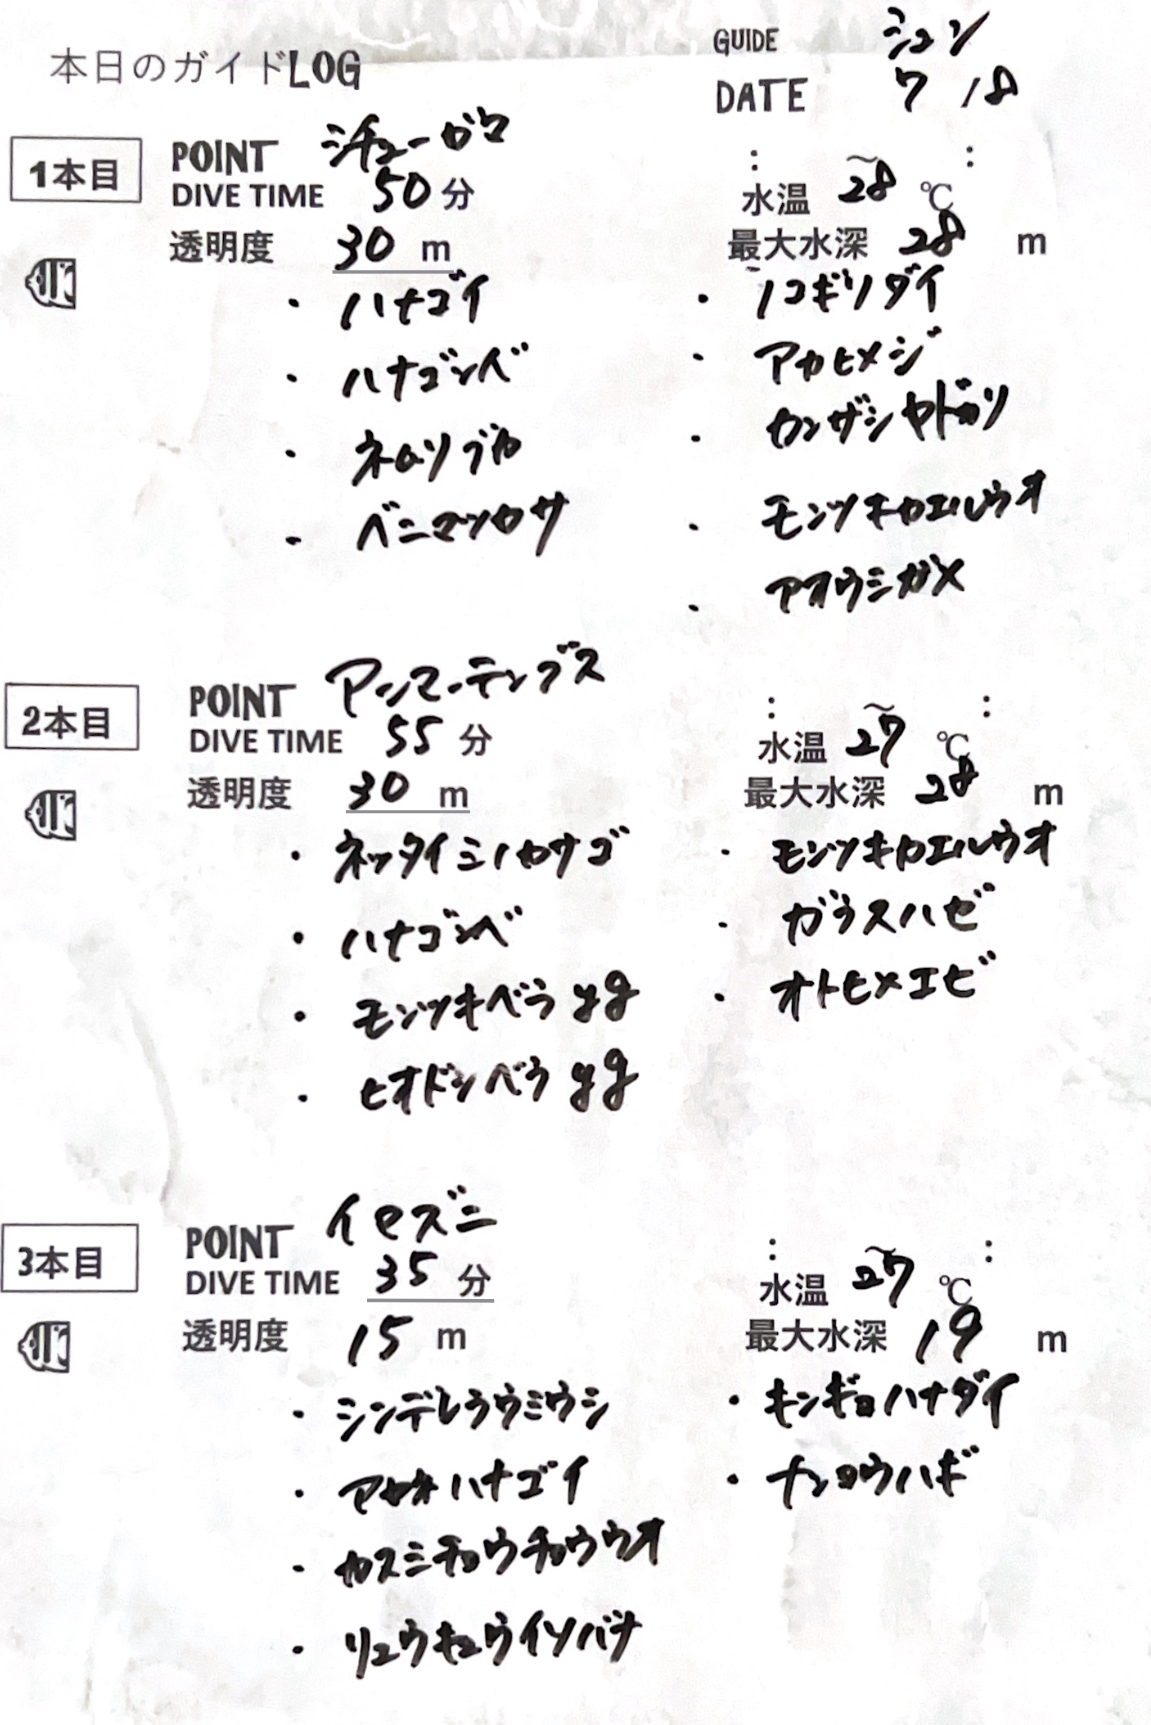 本日のガイドLOG
GUIDE シュン
DATE 7/8
1本目
POINT シチューガマ
: ～ :
DIVE TIME 50分 水温 28℃
透明度 30 m 最大水深 28 m
・ハナゴイ ・ノコギリダイ
・ハナゴンベ ・アカヒメジ
・ネムリブカ ・カンザシヤドカリ
・ベニマツカサ ・モンツキカエルウオ
・アオウミガメ
2本目
POINT アンマーテンブス
: ～ :
DIVE TIME 55分 水温 27℃
透明度 30 m 最大水深 28 m
・ネッタイミノカサゴ ・モンツキカエルウオ
・ハナゴンベ ・ガラスハゼ
・モンツキベラyg ・オトヒメエビ
・ヒオドシベラyg
3本目
POINT イセズニ
: ～ :
DIVE TIME 35分 水温 27℃
透明度 15 m 最大水深 19 m
・シンデレラウミウシ ・キンギョハナダイ
・アカネハナゴイ ・ナンヨウハギ
・カスミチョウチョウウオ
・リュウキュウイソバナ